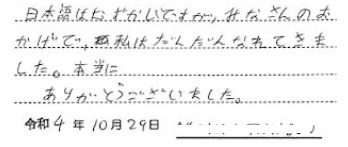 日本語はむずかしいですが、みなさんのお
かげで、私はだんだんなれてきま
した。本当に
ありがとうございました。
令和4年10月29日